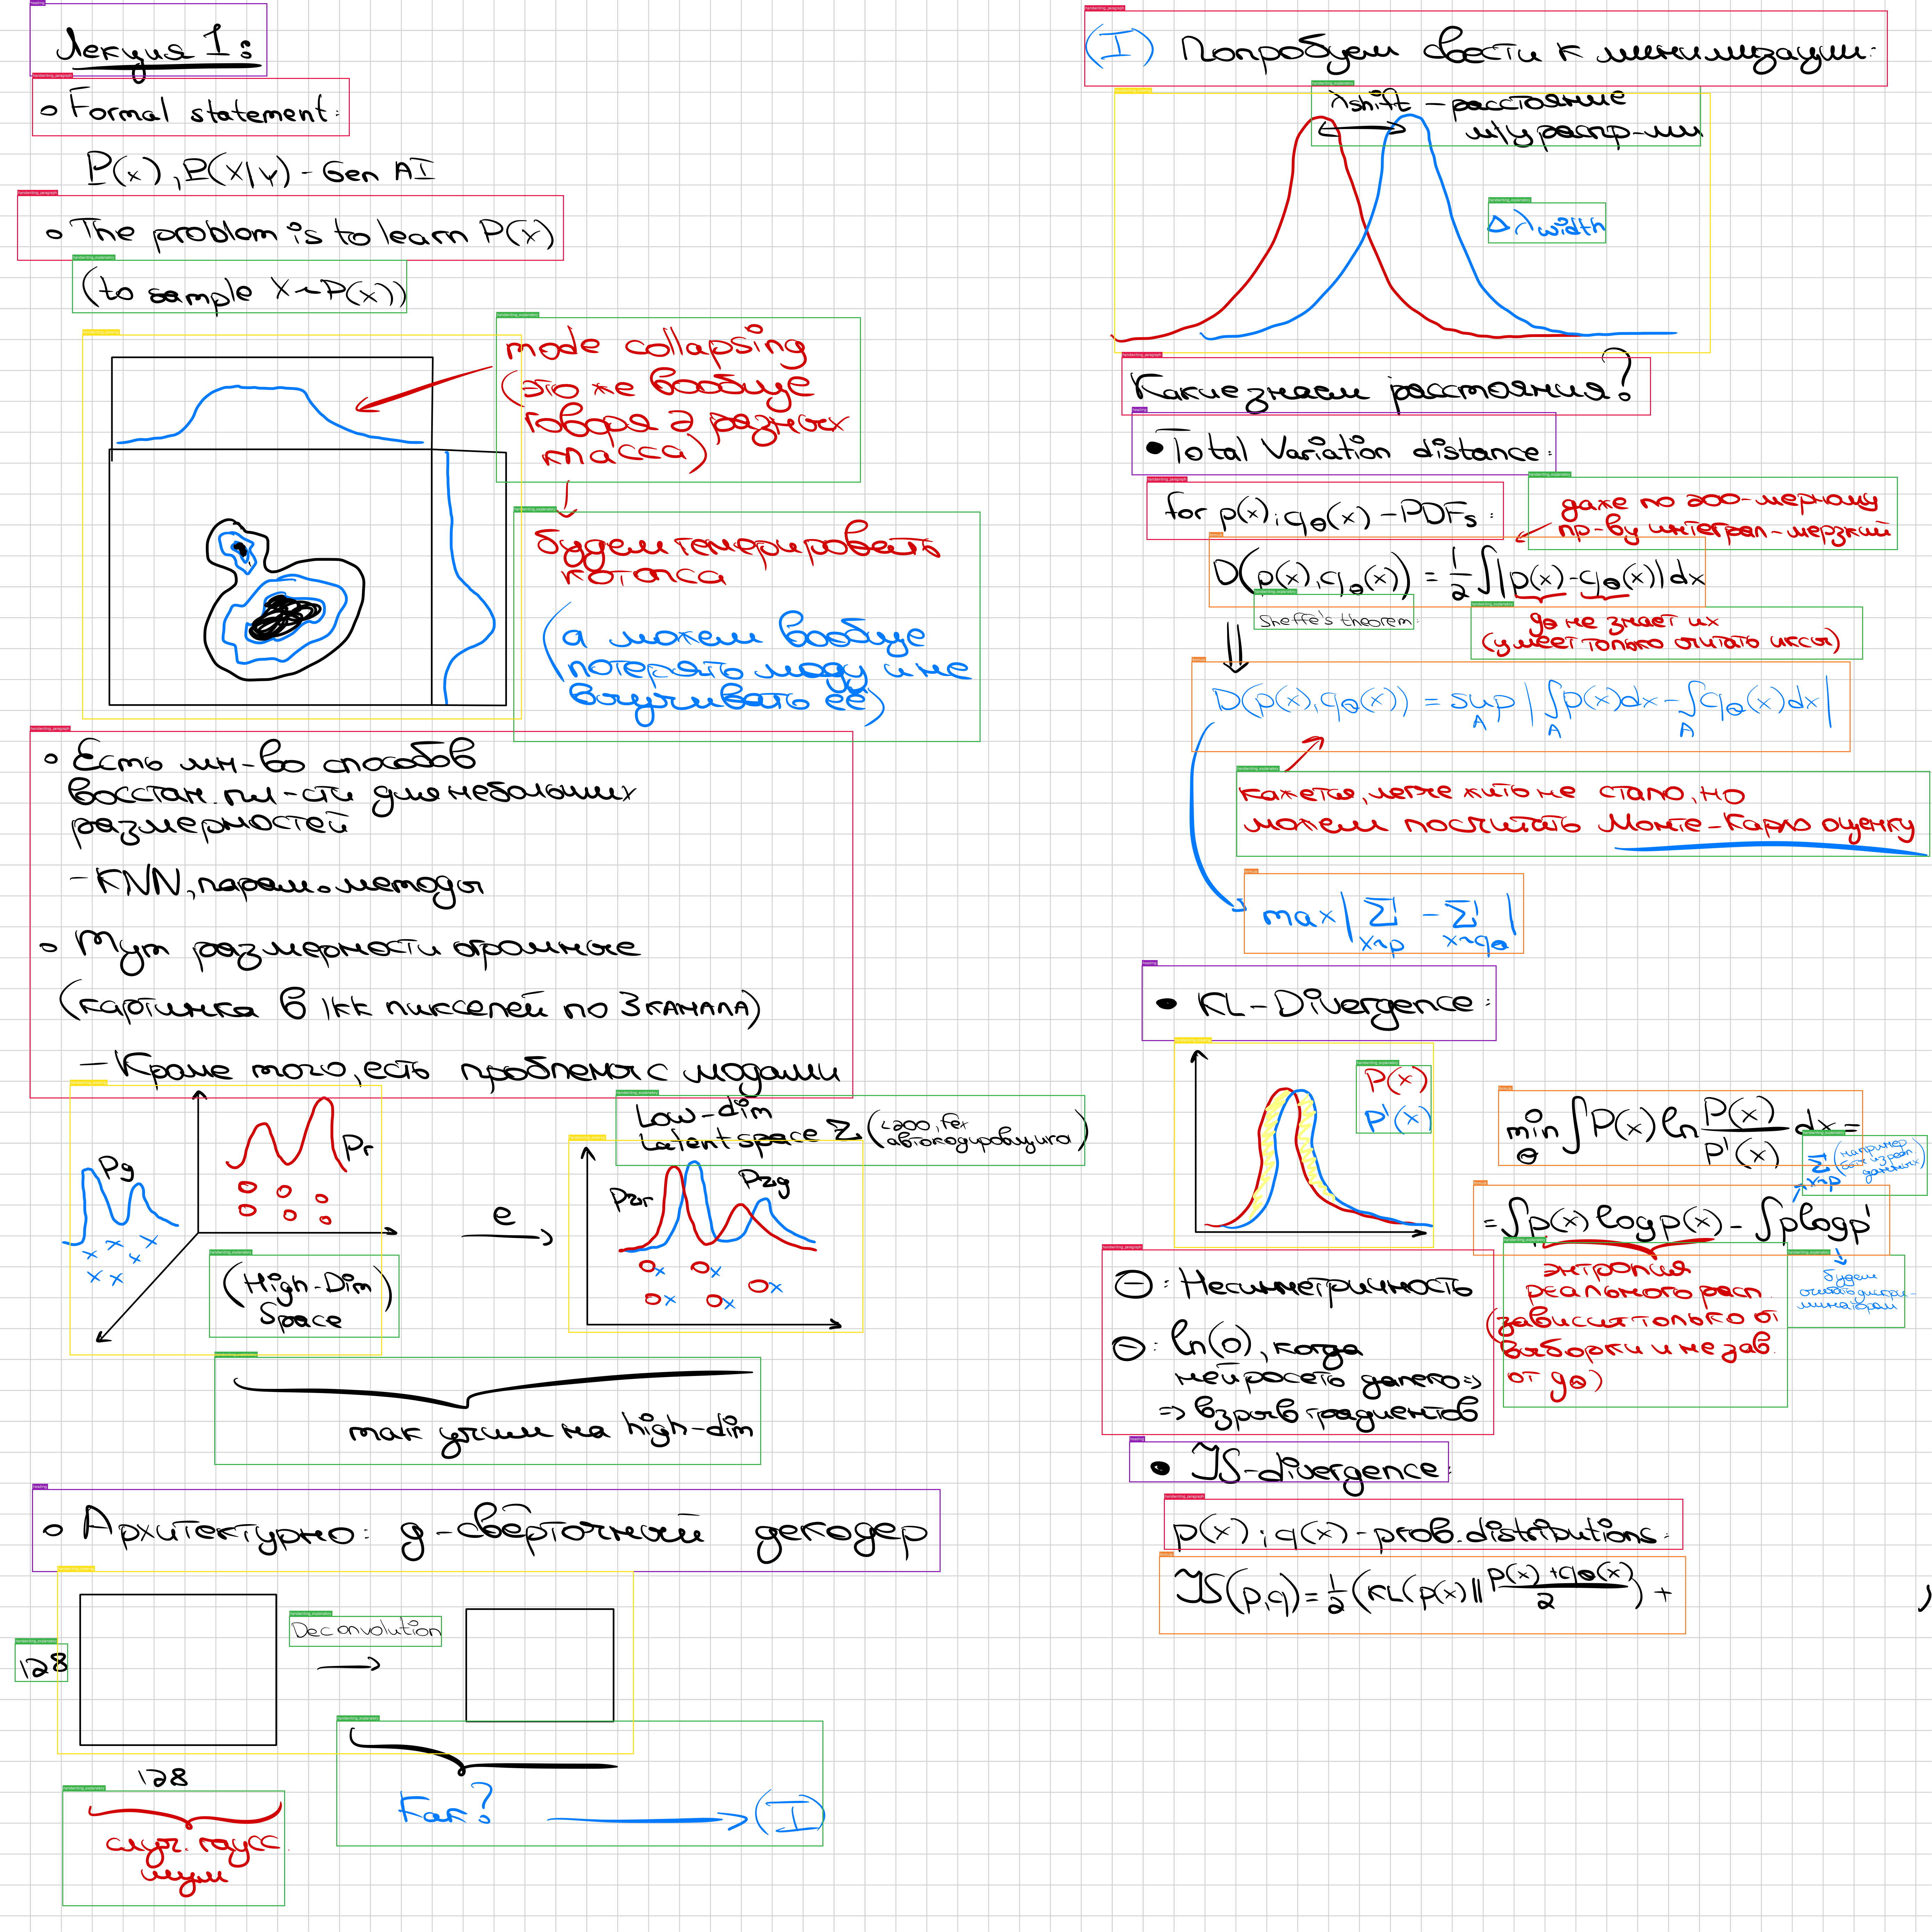 Лекция 1:
∘ Formal statement:
P(x), P(X|Y) - Gen AI
∘ The problem is to learn P(x)
(to sample X~P(x))
mode collapsing
(это же вообще
говоря 2 разных
класса)
будем генерировать
котопса
(а можем вообще
потерять моду и не
выучивать её)
∘ Есть мн-во способов
восстан. пл-сти для небольших
размерностей
- KNN, парам. методы
∘ Тут размерности огромные
(картинка в 1кк пикселей по 3 канала)
- Кроме того, есть проблемы с модами
Pg
Pr
(High-Dim
Space)
e
Low-dim
Latent space Z (<200, fex
автокодировщика)
Pzr
Pzg
так учим на high-dim
∘ Архитектурно: g-свёрточный декодер
128
Deconvolution
128
случ. гаусс.
шум
Как? → (I)
(I) Попробуем свести к минимизации:
λshift - расстояние
м/у распр-ми
Δλwidth
Какие знаем расстояния?
• Total Variation distance:
for p(x); qθ(x) - PDFs:
даже по 200-мерному
пр-ву интеграл - мерзкий
D(p(x), qθ(x)) = 1/2 ∫|p(x) - qθ(x)| dx
Sheffe's theorem:
gθ не знает их
(умеет только считать иксы)
D(p(x), qθ(x)) = sup_A |∫_A p(x)dx - ∫_A qθ(x)dx|
кажется, легче жить не стало, но
можем посчитать Монте-Карло оценку
max|Σ_{x~p} - Σ_{x~qθ}|
• KL-Divergence:
P(x)
P'(x)
min_θ ∫P(x) ln P(x)/P'(x) dx =
Σ_{x~p} (например
из реал
данных)
= ∫p(x) log p(x) - ∫p log p'
энтропия
реального расп.
(зависит только от
выборки и не зав.
от gθ)
будем
считать дискри-
минатором
⊖: Несимметричность
⊖: ln(0), когда
нейросеть далеко =>
=> взрыв градиентов
• JS-divergence:
p(x); q(x) - prob. distributions:
JS(p,q) = 1/2 (KL(p(x) || (p(x)+qθ(x))/2) +